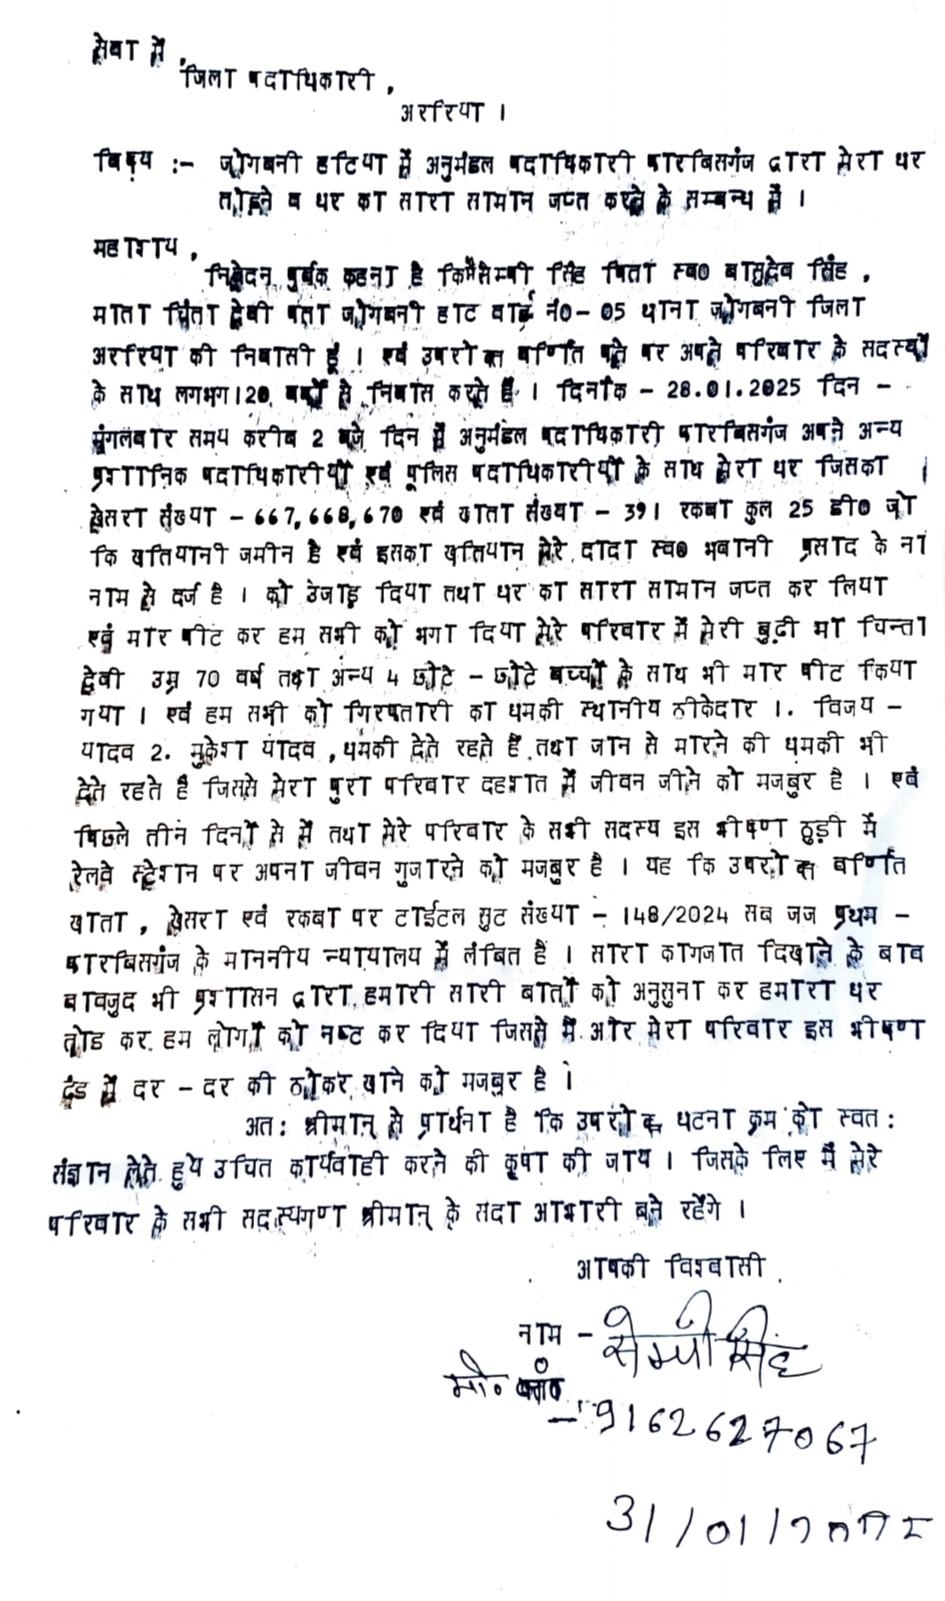 सेवा में ,
जिला पदाधिकारी ,
अररिया ।
विषय :- जोगबनी हटिया में अनुमंडल पदाधिकारी फारबिसगंज द्वारा मेरा घर
तोड़ने व घर का सारा सामान जप्त करने के सम्बन्ध में ।
महाशय ,
निवेदन पुर्बक कहना है कि मैं सेम्पी सिंह पिता स्व० बासुदेव सिंह ,
माता चिंता देवी पता जोगबनी हाट वार्ड नं०- 05 थाना जोगबनी जिला
अररिया की निवासी हूं । एवं उपरोक्त वर्णित पते पर अपने परिवार के सदस्यों
के साथ लगभग 120 वर्षों से निवास करते हैं । दिनांक - 28.01.2025 दिन -
मंगलवार समय करीब 2 बजे दिन में अनुमंडल पदाधिकारी फारबिसगंज अपने अन्य
प्रशानिक पदाधिकारीयों एवं पूलिस पदाधिकारीयों के साथ मेरा घर जिसका
खेसरा संख्या - 667,668,670 एवं खाता संख्या - 391 रकबा कुल 25 डी० जो
कि खतियानी जमीन है एवं इसका खतियान मेरे दादा स्व० भबानी प्रसाद के ना
नाम से दर्ज है । को उजाड़ दिया तथा घर का सारा सामान जप्त कर लिया
एवं मार पीट कर हम सभी को भगा दिया मेरे परिवार में मेरी बुढ़ी मा चिन्ता
देवी उम्र 70 वर्ष तथा अन्य 4 छोटे - छोटे बच्चों के साथ भी मार पीट किया
गया । एवं हम सभी को गिरफ्तारी का धमकी स्थानीय ठीकेदार 1. विजय -
यादव 2. मुकेश यादव , धमकी देते रहते हैं तथा जान से मारने की धमकी भी
देते रहते है जिससे मेरा पुरा परिवार दहशत में जीवन जीने को मजबुर है । एवं
पिछले तीन दिनों से में तथा मेरे परिवार के सभी सदस्य इस भीषण ठुड़ी में
रेलवे स्टेशन पर अपना जीवन गुजारने को मजबुर है । यह कि उपरोक्त वर्णित
खाता , खेसरा एवं रकबा पर टाईटल सुट संख्या - 148/2024 सब जज प्रथम -
फारबिसगंज के माननीय न्यायालय में लंबित है । सारा कागजात दिखाने के बाव
बावजुद भी प्रशासन द्वारा हमारी सारी बातों को अनुसुना कर हमारा घर
तोड कर हम लोगों को नष्ट कर दिया जिससे में और मेरा परिवार इस भीषण
ठंड में दर - दर की ठोकरे खाने को मजबुर है ।
अत: श्रीमान् से प्रार्थना है कि उपरोक्त घटना क्रम को स्वत:
संज्ञान लेते हुये उचित कार्यवाही करने की कृपा की जाय । जिसके लिए में मेरे
परिवार के सभी सदस्यगण श्रीमान् के सदा आभारी बने रहेंगे ।
आपकी विश्वासी
नाम - सेम्पी सिंह
मो०
- 9162627067
31/01/2025